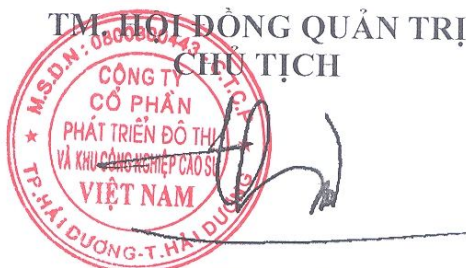 TM. HỘI ĐỒNG QUẢN TRỊ
CHỦ TỊCH
M.S.D.N: 0800300443 -C.T.C.P
CÔNG TY
CỔ PHẦN
PHÁT TRIỂN ĐÔ THỊ
VÀ KHU CÔNG NGHIỆP CAO SU
VIỆT NAM
TP.HẢI DƯƠNG-T.HẢI DƯƠNG